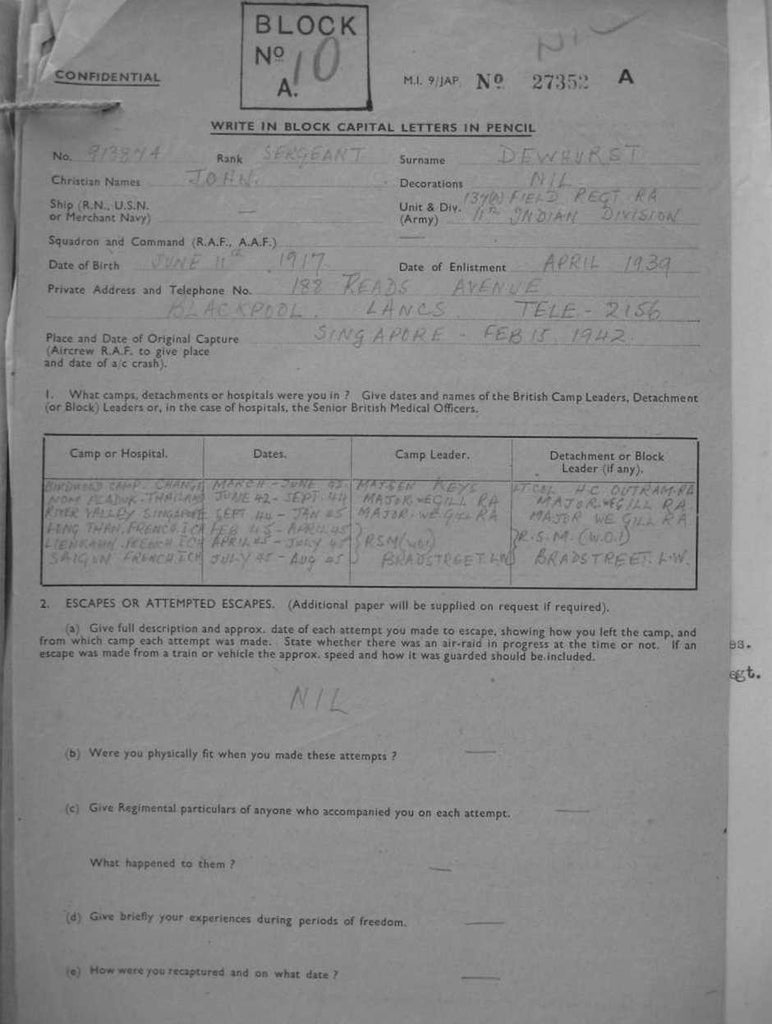 BLOCK
Nº 10
A.
NIL
CONFIDENTIAL
M.I. 9/JAP. Nº 27352 A
WRITE IN BLOCK CAPITAL LETTERS IN PENCIL
No. 913874 Rank SERGEANT Surname DEWHURST
Christian Names JOHN. Decorations NIL
Ship (R.N., U.S.N. or Merchant Navy) — Unit & Div. (Army) 137(A) FIELD REGT. RA
11TH INDIAN DIVISION
Squadron and Command (R.A.F., A.A.F.)
Date of Birth JUNE 11th 1917 Date of Enlistment APRIL 1939
Private Address and Telephone No. 188 READS AVENUE
BLACKPOOL. LANCS. TELE - 2156
Place and Date of Original Capture SINGAPORE - FEB 15. 1942.
(Aircrew R.A.F. to give place
and date of a/c crash).
1. What camps, detachments or hospitals were you in ? Give dates and names of the British Camp Leaders, Detachment
(or Block) Leaders or, in the case of hospitals, the Senior British Medical Officers.
Camp or Hospital. Dates. Camp Leader. Detachment or Block
Leader (if any).
BIRDWOOD CAMP. CHANGI MARCH - JUNE 42. KEYS LT COL H.C. OUTRAM. RA
NONG PLADUK. THAILAND JUNE 42 - SEPT. 44 MAJOR. WE GILL RA MAJOR. WE GILL RA
RIVER VALLEY SINGAPORE SEPT 44 - JAN 45 MAJOR. WE GILL RA MAJOR WE GILL RA
LONG THAN. FRENCH. ICH FEB 45 - APRIL 45 } RSM (WO1) } R.S.M. (W.O.1)
FRENCH. ICH APRIL 45 - JULY 45
SAIGON FRENCH. ICH JULY 45 - AUG 45 BRADSTREET. LW BRADSTREET. L.W.
2. ESCAPES OR ATTEMPTED ESCAPES. (Additional paper will be supplied on request if required).
(a) Give full description and approx. date of each attempt you made to escape, showing how you left the camp, and
from which camp each attempt was made. State whether there was an air-raid in progress at the time or not. If an
escape was made from a train or vehicle the approx. speed and how it was guarded should be included.
NIL
(b) Were you physically fit when you made these attempts ? —
(c) Give Regimental particulars of anyone who accompanied you on each attempt. —
What happened to them ? —
(d) Give briefly your experiences during periods of freedom. —
(e) How were you recaptured and on what date ? —
egt.